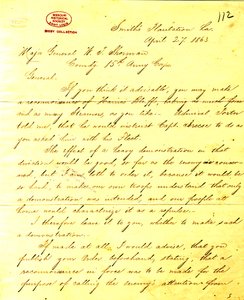 MISSOURI
HISTORICAL
SOCIETY
BIXBY COLLECTION
112
Smith's Plantation La.
April 27 1863
Maj. General W. T. Sherman
Comdg 15th Army Corps
General,
If you think it advisable, you may make
a reconnoissance of Haines Bluff, taking as much force
and as many Steamers as you like. Admiral Porter
told me, that he would instruct Capt. Breese to do as
you asked him with his fleet.
The effect of a heavy demonstration in that
direction would be good, so far as the enemy is concer-
ned, but I am loth to order it, because it would be
so hard, to make our own troops understand that only
a demonstration was intended, and our people at
home would characterize it as a repulse.
I therefore leave it to you, whether to make such
a demonstration.
If made at all, I would advise, that you
publish your order beforehand, stating, that a
reconnoissance in force was to be made for the
purpose of calling the enemy's attention from